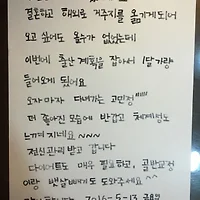 결혼하고 해외로 거주지를 옮기게 되어
오고 싶어도 올수가 없었는데
이번에 출산 계획을 잡아서 1달가량
들어오게 됐어요
오자마자 다녀가는 고민정
더 좋아진 모습에 반갑고 세계정도
느껴 지네요 ~~~
정신관리 받고 갑니다
다이어트도 매우 필요하고, 골반교정
이랑 뱃살빼기도 도와주세요 ^^
2016-5-13